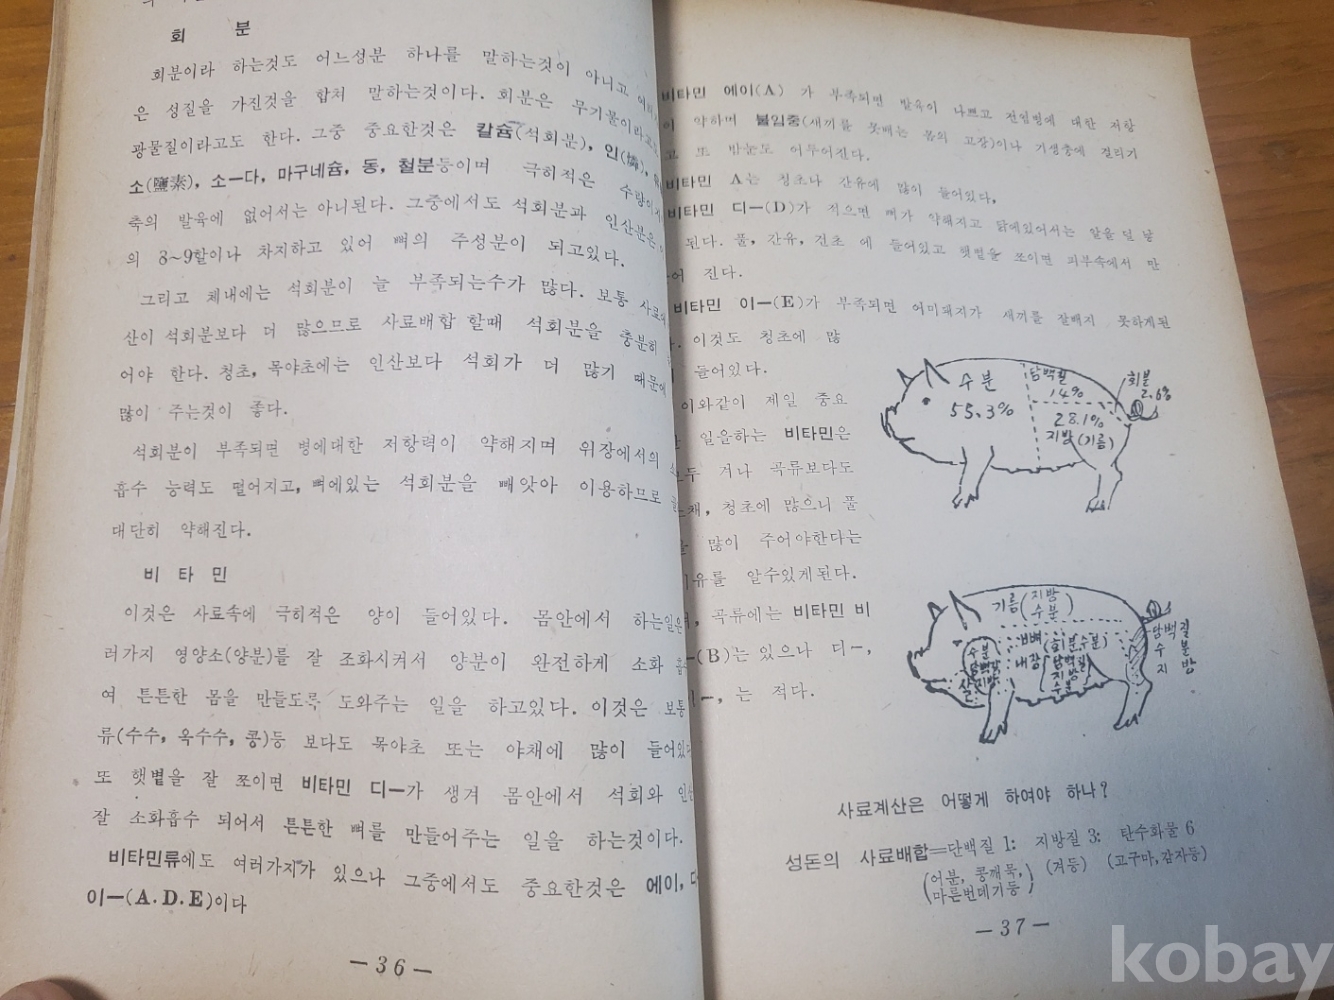 회 분
회분이라 하는것도 어느성분 하나를 말하는것이 아니고
은 성질을 가진것을 합쳐 말하는것이다. 회분은 무기물이라고도
광물질이라고도 한다. 그중 중요한것은 칼슘(석회분), 인(燐),
소(鹽素), 소ー다, 마구네슘, 동, 철분등이며 극히적은 수량이지
축의 발육에 없어서는 아니된다. 그중에서도 석회분과 인산분은
의 8~9할이나 차지하고 있어 뼈의 주성분이 되고있다.
그리고 체내에는 석회분이 늘 부족되는수가 많다. 보통 사료에
산이 석회분보다 더 많으므로 사료배합 할때 석회분을 충분히
어야 한다. 청초, 목야초에는 인산보다 석회가 더 많기 때문에
많이 주는것이 좋다.
석회분이 부족되면 병에대한 저항력이 약해지며 위장에서의
흡수 능력도 떨어지고, 뼈에있는 석회분을 빼앗아 이용하므로
대단히 약해진다.
비 타 민
이것은 사료속에 극히적은 양이 들어있다. 몸안에서 하는일은
러가지 영양소(양분)를 잘 조화시켜서 양분이 완전하게 소화
여 튼튼한 몸을 만들도록 도와주는 일을 하고있다. 이것은 보통
류(수수, 옥수수, 콩)등 보다도 목야초 또는 야채에 많이 들어있다
또 햇볕을 잘 쪼이면 비타민 디ー가 생겨 몸안에서 석회와 인산
잘 소화흡수 되어서 튼튼한 뼈를 만들어주는 일을 하는것이다.
비타민류에도 여러가지가 있으나 그중에서도 중요한것은 에이,
이ー(A.D.E)이다
—36—
비타민 에이(A) 가 부족되면 발육이 나쁘고 전염병에 대한 저항
이 약하며 불임증(새끼를 못배는 몸의 고장)이나 기생충에 걸리기
고 또 밤눈도 어두어진다.
비타민 A는 청초나 간유에 많이 들어있다,
비타민 디ー(D)가 적으면 뼈가 약해지고 닭에있어서는 알을 덜 낳
된다. 풀, 간유, 건초 에 들어있고 햇볕을 쪼이면 피부속에서 만
어 진다.
비타민 이ー(E)가 부족되면 어미돼지가 새끼를 잘배지 못하게된
. 이것도 청초에 많
들어있다.
이와같이 제일 중요
일을하는 비타민은
두 거나 곡류보다도
채, 청초에 많으니 풀
많이 주어야한다는
유를 알수있게된다.
, 곡류에는 비타민 비
ー(B)는 있으나 디ー,
ー, 는 적다.
수분
55.3%
담백질
14%
28.1%
지방(기름)
회분
2.6%
기름(지방 수분)
뼈(회분,수분)
내장(담백질 지방 수분)
수분
담백질
지방
살
담백질
수분
지방
사료계산은 어떻게 하여야 하나?
성돈의 사료배합=단백질 1: 지방질 3: 탄수화물 6
(어분, 콩깨묵, 마른번데기등) (겨등) (고구마,감자등)
—37—
kobay